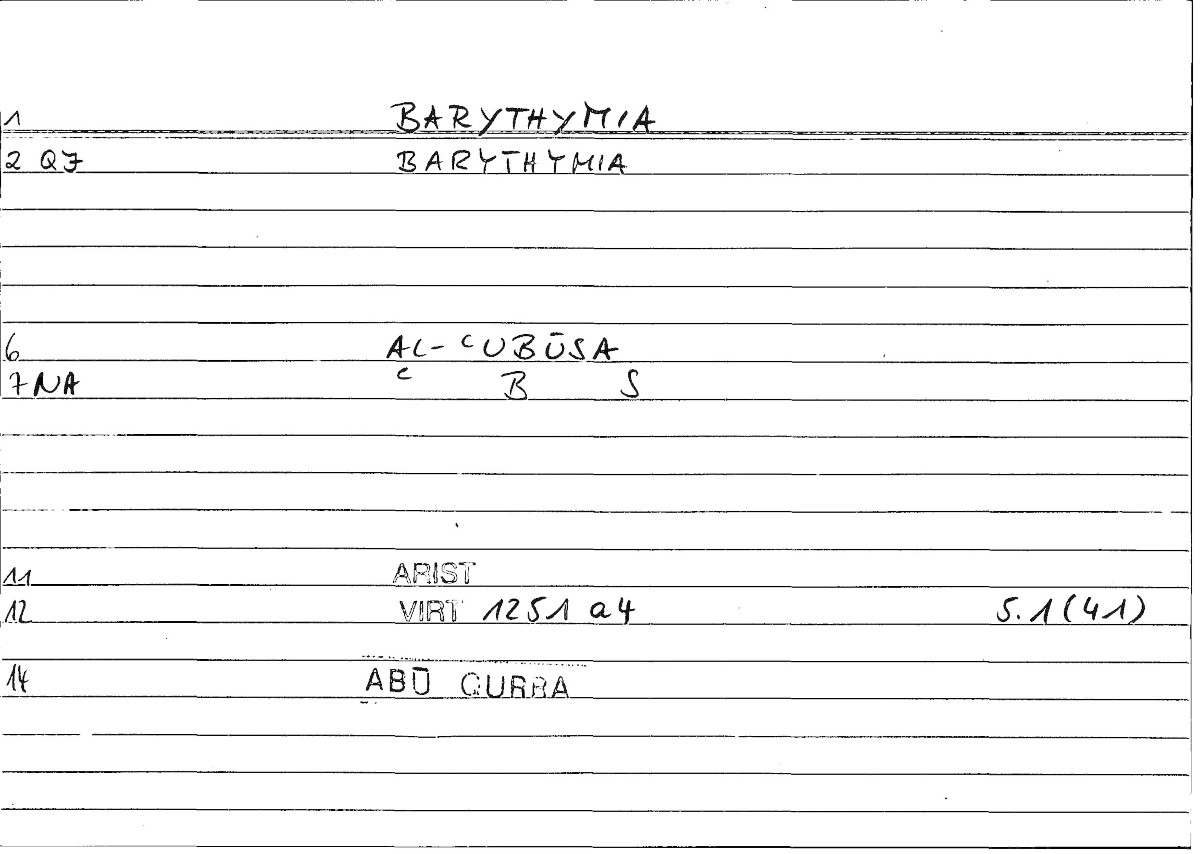 1 BARYTHYMIA
2 Q7 BARYTHYMIA
6 AL-ʿUBŪSA
7 NA ʿ B S
11 ARIST
12 VIRT 1251 a4 S.1(41)
14 ABŪ QURRA